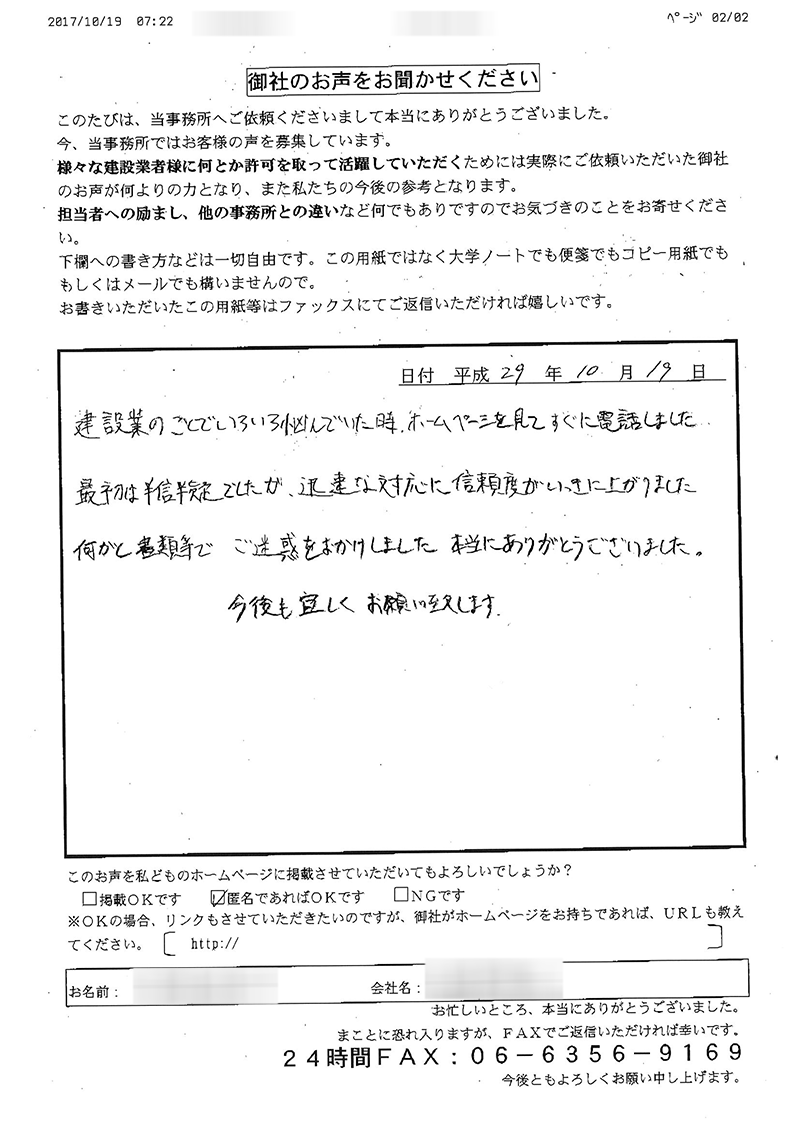 2017/10/19 07:22
ﾍﾟｰｼﾞ 02/02
御社のお声をお聞かせください
このたびは、当事務所へご依頼くださいまして本当にありがとうございました。
今、当事務所ではお客様の声を募集しています。
様々な建設業者様に何とか許可を取って活躍していただくためには実際にご依頼いただいた御社
のお声が何よりの力となり、また私たちの今後の参考となります。
担当者への励まし、他の事務所との違いなど何でもありですのでお気づきのことをお寄せくださ
い。
下欄への書き方などは一切自由です。この用紙ではなく大学ノートでも便箋でもコピー用紙でも
もしくはメールでも構いませんので。
お書きいただいたこの用紙等はファックスにてご返信いただければ嬉しいです。
日付 平成 29 年 10 月 19 日
建設業のことでいろいろ悩んでいた時、ホームページを見てすぐに電話しました
最初は半信半疑でしたが、迅速な対応に信頼度がいっきに上がりました
何かと書類等で ご迷惑をおかけしました 本当にありがとうございました。
今後も宜しくお願い致します.
このお声を私どものホームページに掲載させていただいてもよろしいでしょうか？
□掲載ＯＫです ☑匿名であればＯＫです □ＮＧです
※ＯＫの場合、リンクもさせていただきたいのですが、御社がホームページをお持ちであれば、ＵＲＬも教え
てください。 〔 http:// 〕
お名前： 会社名：
お忙しいところ、本当にありがとうございました。
まことに恐れ入りますが、ＦＡＸでご返信いただければ幸いです。
２４時間ＦＡＸ：０６－６３５６－９１６９
今後ともよろしくお願い申し上げます。